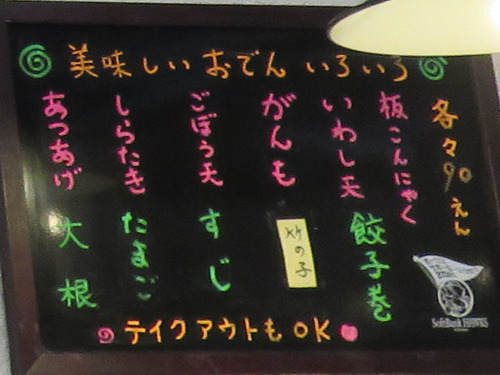 美味しい おでん いろいろ
各々90えん
板こんにゃく
いわし天
餃子巻
がんも
竹の子
ごぼう天
すじ
しらたき
たまご
あつあげ
大根
テイクアウトもOK
SoftBank HAWKS